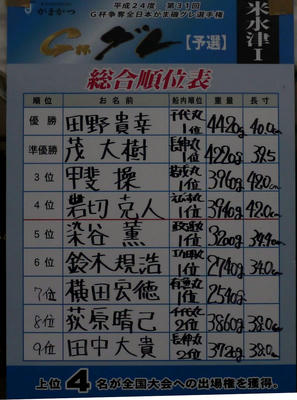 がまかつ
平成24度 第31回
G杯争奪全日本がま磯グレ選手権
G杯グレ【予選】
米水津I
総合順位表
順位 お名前 船内順位 重量 長寸
優勝 田野貴幸 千代丸 1位 4420g 40.0cm
準優勝 茂大樹 長伸丸 1位 4220g 38.5
3位 甲斐操 1位 3960g 48.0cm
4位 岩切克人 1位 3940g 42.0cm
5位 染谷薫 1位 3200g 39.4cm
6位 鈴木規浩 1位 2740g 34.0cm
7位 横田宏徳 1位 2540g
8位 荻原晴己 千代丸 2位 3860g 38.0cm
9位 田中大貴 長伸丸 2位 3720g 38.0cm
上位4名が全国大会への出場権を獲得。